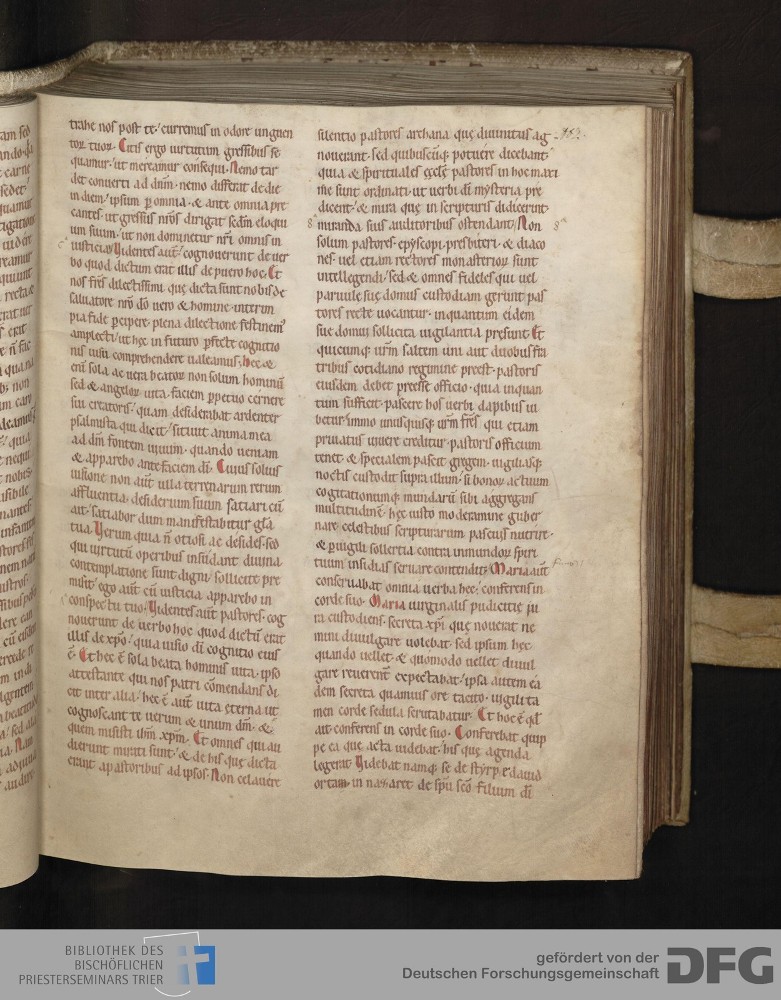 trahe nos post te; curremus in odore unguen
toꝝ tuoꝝ. Citis ergo uirtutum gressibus se
quamur. ut mereamur consequi. Nemo tar
det conuerti ad dn̄m. nemo differat de die
in diem. ipsum ꝑ omnia. & ante omnia pre
cantes. ut gressus nr̄os dirigat scd̄m eloqui
um suum. ut non dominetur nr̄i omnis in
iusticia. Videntes aut̄. cognouerunt de uer
bo quod dictum erat illis de puero hoc. Et
nos fr̄s dilectissimi. que dicta sunt nobis de
saluatore nr̄o dō uero & homine. interim
pia fide ꝑcipere. plena dilectione festinem᷒
amplecti. ut hec in futuro ꝑfecte cognitio
nis uisu comprehendere ualeamus. hec &
eni sola ac uera beatoꝝ non solum hominū
sed & angeloꝝ uita. faciem ꝑpetuo cernere
sui creatoris. quam desiderabat ardenter
psalmista qui dicit. sitiuit anima mea
ad dm̄ fontem uiuum. quando ueniam
& apparebo ante faciem dī. Cuius solius
uisione non aut̄ ulla terrenarum rerum
affluentia. desiderium suum satiari cū
ait. satiabor dum manifestabitur glā
tua. Verum quia n̄ otiosi ac desides. sed
qui uirtutū operibus insudant. diuina
contemplatione sunt digni. sollicite pre
misit. ego aut̄ cū iusticia apparebo in
conspectu tuo. Videntes aut̄ pastores. cog
nouerunt de uerbo hoc. quod dictū erat
illis de xp̄o. quia uisio dī cognitio eius
ē. Et hec ē sola beata hominis uita. ipso
attestante qui nos patri cōmendans di
cit inter alia. hec ē aut̄ uita eterna ut
cognoscant te uerum & unum dm̄. &
quem misisti ihm̄ xp̄m. Et omnes qui au
dierunt mirati sunt. & de his que dicta
erant a pastoribus ad ipsos. Non celauere
silentio pastores archana que diuinitus ag
nouerant. sed quibuscūq; potuere dicebant.
quia & spirituales eccle pastores in hoc maxi
me sunt ordinati. ut uerbi dī mysteria pre
dicent. & mira que in scripturis didicerint.
miranda suis auditoribus ostendant. Non
solum pastores. epyscopi. presbiteri. & diaco
nes. uel etiam rectores monasterioꝝ sunt
intellegendi. sed & omnes fideles qui uel
paruule sue domus custodiam gerunt. pas
tores recte uocantur. inquantum eidem
sue domui sollicita uigilantia presunt. Et
quicumq; ur̄m saltem uni aut duobus fra
tribus cotidiano regimine preest. pastoris
eiusdem debet preesse officio. quia inquan
tum sufficit. pascere hos uerbi dapibus iu
betur. immo unusquisq; ur̄m fr̄es qui etiam
priuatus uiuere creditur. pastoris officium
tenet. & specialem pascit gregem. uigiliasq;
noctis custodit supra illum. si bonoꝝ actuum
cogitationumq; mundarū sibi aggregans
multitudinē. hec iusto moderamine guber
nare. celestibus scripturarum pascuis nutrire.
& ꝑuigili sollertia contra inmundoꝝ spiri
tuum insidias seruare contendit. Maria aut̄
conseruabat omnia uerba hec. conferens in
corde suo. Maria uirginalis pudicitie iu
ra custodiens. secreta xp̄i que nouerat ne
mini diuulgare uolebat. sed ipsum hec
quando uellet. & quomodo uellet diuul
gare reuerent̄ expectabat. ipsa autem ea
dem secreta. quamuis ore tacito. uigili ta
men corde sedula scrutabatur. Et hoc ē qd̄
ait. conferens in corde suo. Conferebat quip
pe ea que acta uidebat. his que agenda
legerat. Videbat namq; se de stirpe dauid
ortam. in nazaret de sp̄u scō filium dī
BIBLIOTHEK DES
BISCHÖFLICHEN
PRIESTERSEMINARS TRIER
gefördert von der
Deutschen Forschungsgemeinschaft
DFG